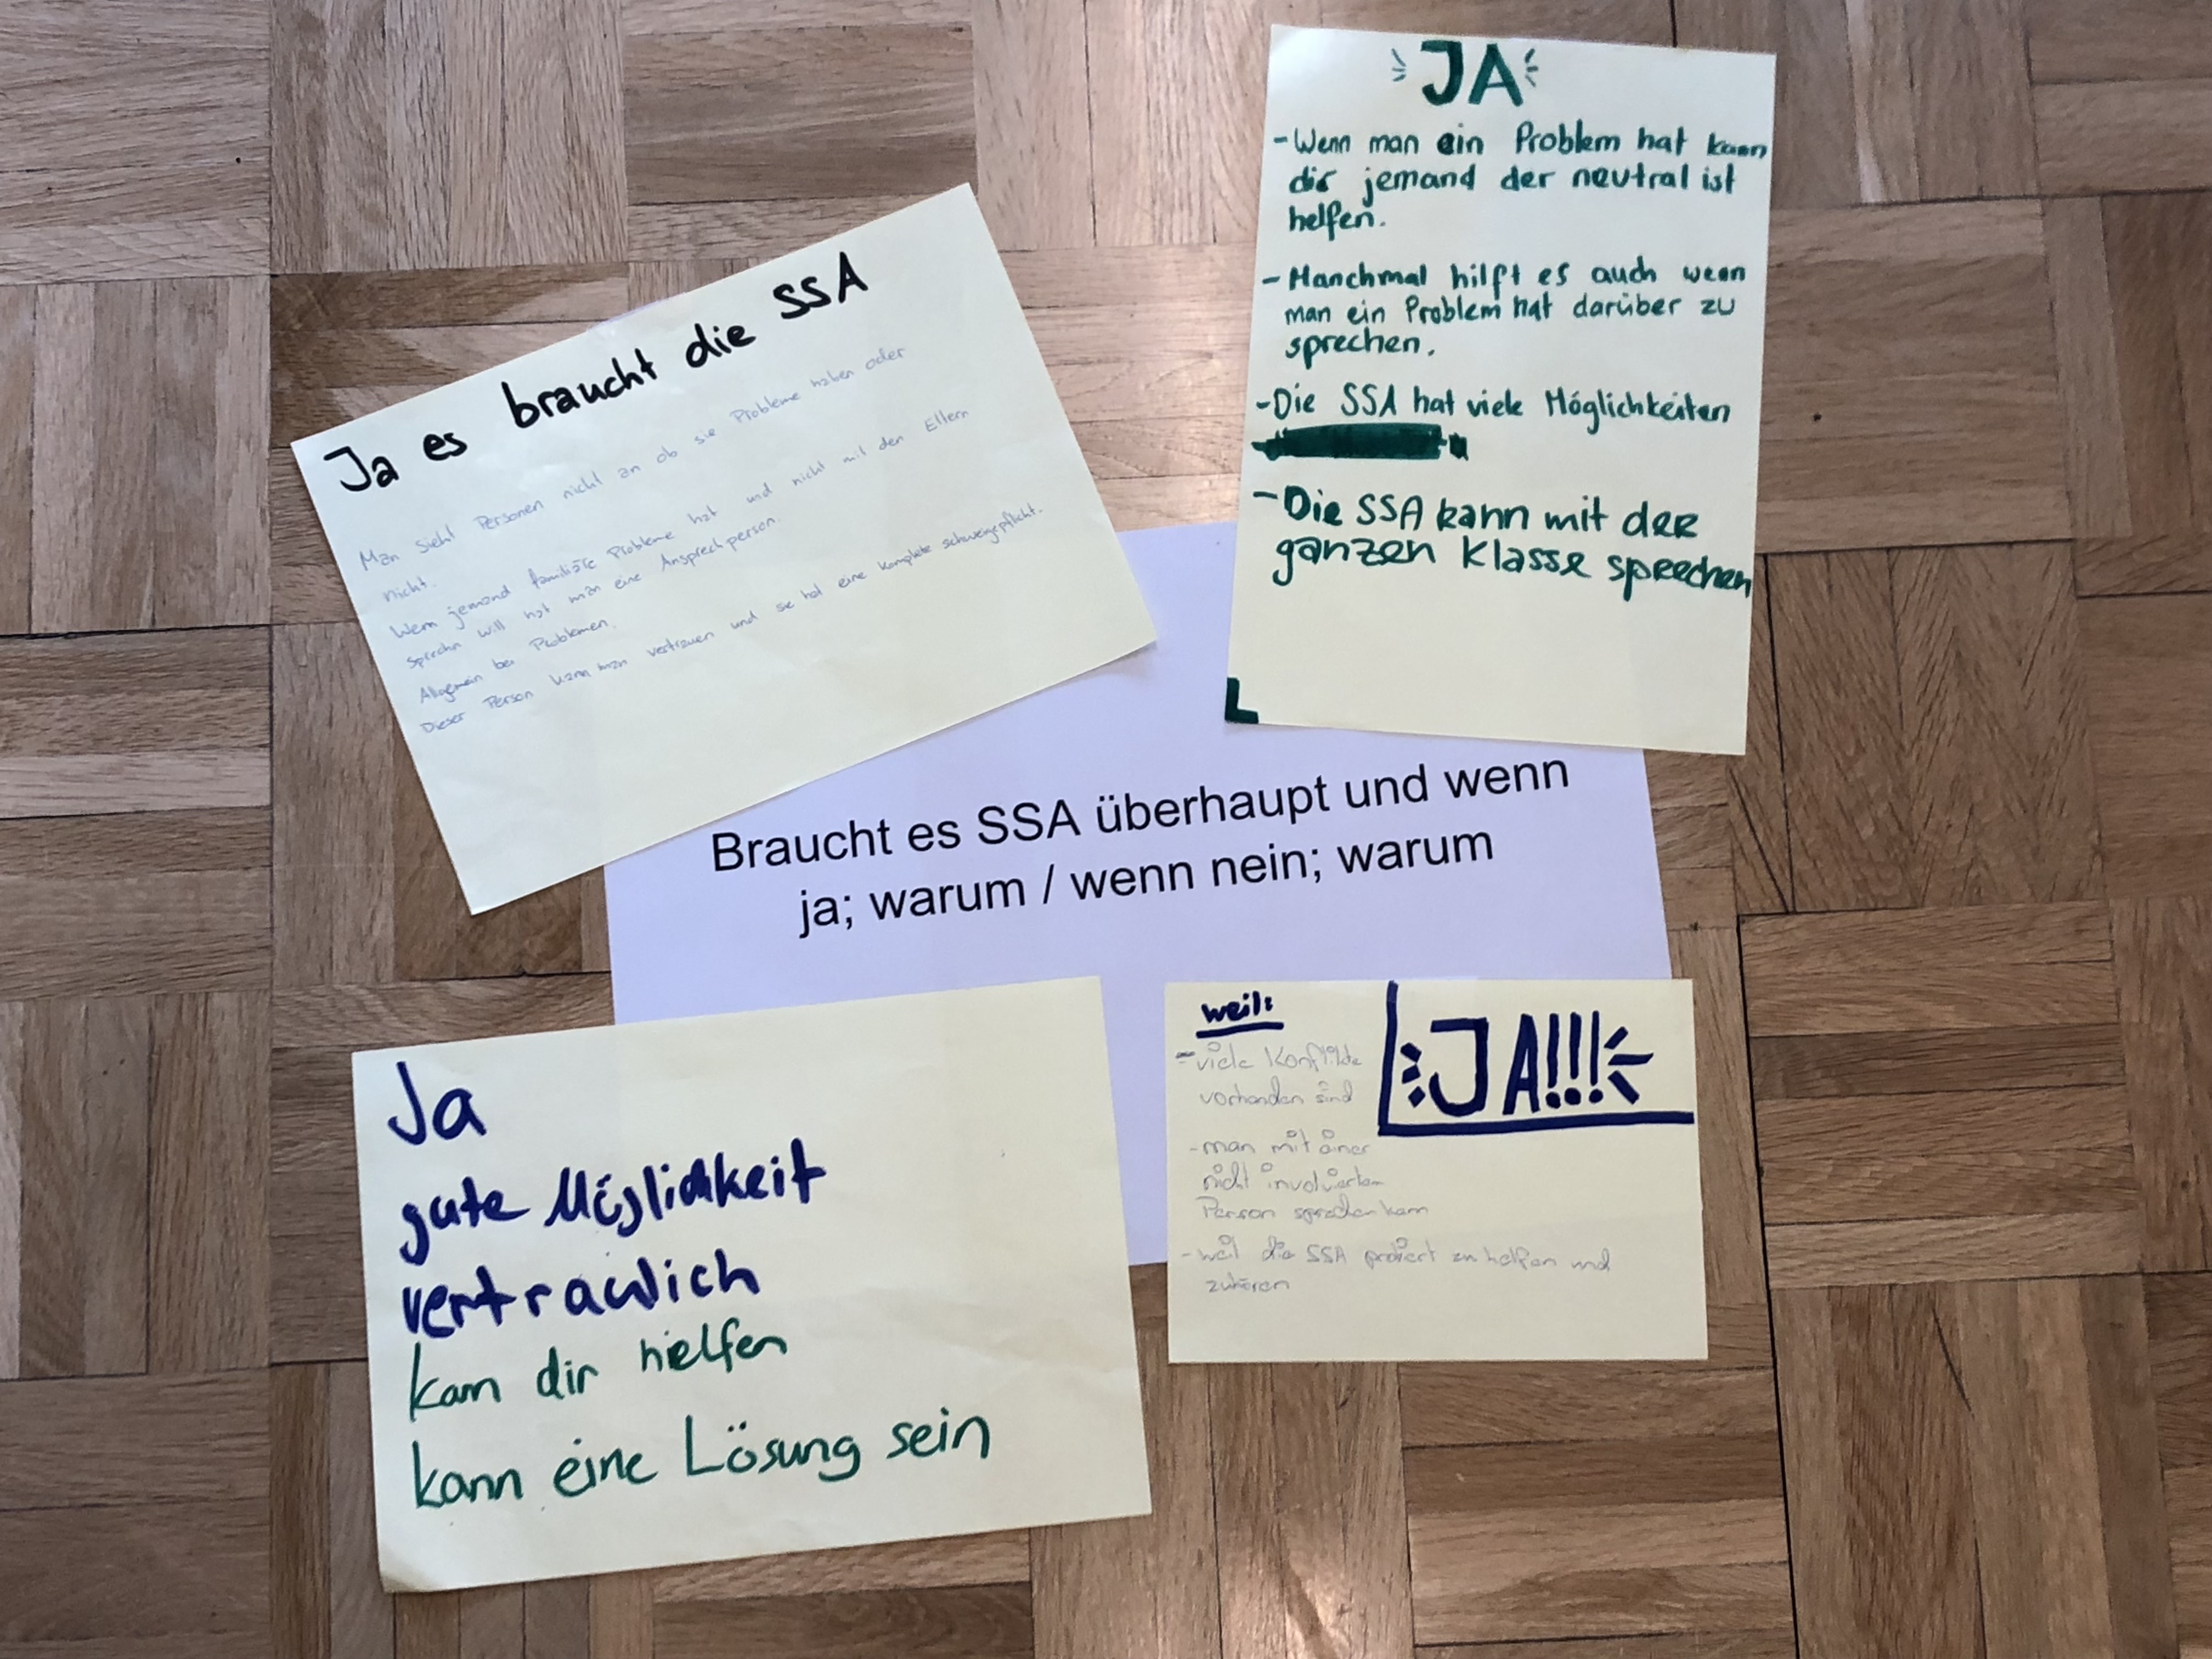 Ja es braucht die SSA
Man sieht Personen nicht an ob sie Probleme haben oder
nicht.
Wenn jemand familiäre Probleme hat und nicht mit den Eltern
sprechn will hat man eine Ansprechperson.
Allgemein bei Problemen.
Dieser Person kann man vertrauen und sie hat eine komplete schweigepflicht.
JA
- Wenn man ein Problem hat kann
dir jemand der neutral ist
helfen.
- Manchmal hilft es auch wenn
man ein Problem hat darüber zu
sprechen.
- Die SSA hat viele Möglichkeiten
- Die SSA kann mit der
ganzen Klasse sprechen
Braucht es SSA überhaupt und wenn
ja; warum / wenn nein; warum
Ja
gute Möglichkeit
vertraulich
kann dir hielfen
kann eine Lösung sein
weil:
JA!!!
- viele Konflikte
vorhanden sind
- man mit einer
nicht involvierten
Person sprechen kann
- weil die SSA probiert zu helfen und
zuhören